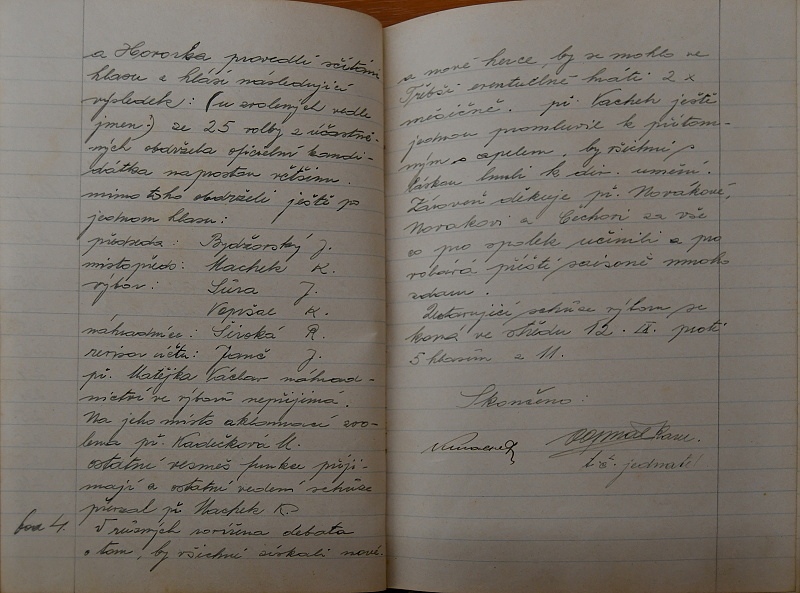 a Hovorka provedli sčítání
hlasů a hlásí následující
výsledek: (u zvolených vedle
jmen:) ze 25 volby z účastně-
ných obdržela oficielní kandi-
dátka napostou většinu.
mimo toho obdrželi ještě po
jednom hlasu:
předseda: Bydžovský J.
místopřed: Machek K.
výbor: Sůra J.
Vepřše K.
náhradníce: Široká R.
revisor účtů: Janč J.
př. Matějka Václav náhrad-
nictví ve výboru nepřijímá.
Na jeho místo aklamací zvo-
lena př. Kadečková M.
ostatní vesměs funkce přijí-
mají a ostatní vedení schůze
převzal př. Machek K.
bod 4. V různých rozvířena debata
o tom, by všichni získali nové-
a nové herce, by se mohlo ve
Třebši eventuelně hráti 2 x
měsíčně. př. Vachek ještě
jednou promluvil k přítom-
ným s apelem, by všichni s
láskou lnuli k div. umění.
Zároveň děkuje př. Novákové,
Novákovi a Čechovi za vše
co pro spolek učinili a pro
příští saisoně mnoho
zdaru.
Ustavující schůze výboru se
koná ve středu 12. IX. proti
5 hlasům a 11.
Skončeno:
t.č. jednatel